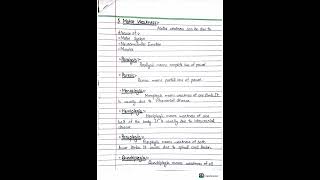 5. Motor Weakness:-
Motor weakness can be due to
disease of:
• Motor System
• Neuromuscular Junction
• Muscles
• Paralysis:-
Paralysis means complete loss of power.
• Paresis:-
Paresis means partial loss of power.
• Monoplegia:-
Monoplegia means weakness of one limb. It
is usually due to intracranial disease.
• Hemiplegia:-
Hemiplegia means weakness of one
half of the body. It is usually due to intracranial
disease
• Paraplegia:-
Paraplegia means weakness of both
lower limbs. It occurs due to spinal cord lesion.
• Quadriplegia:-
Quadriplegia means weakness of all